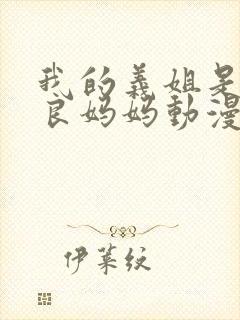 我的義姐是
良媽媽動漫
伊萊紋